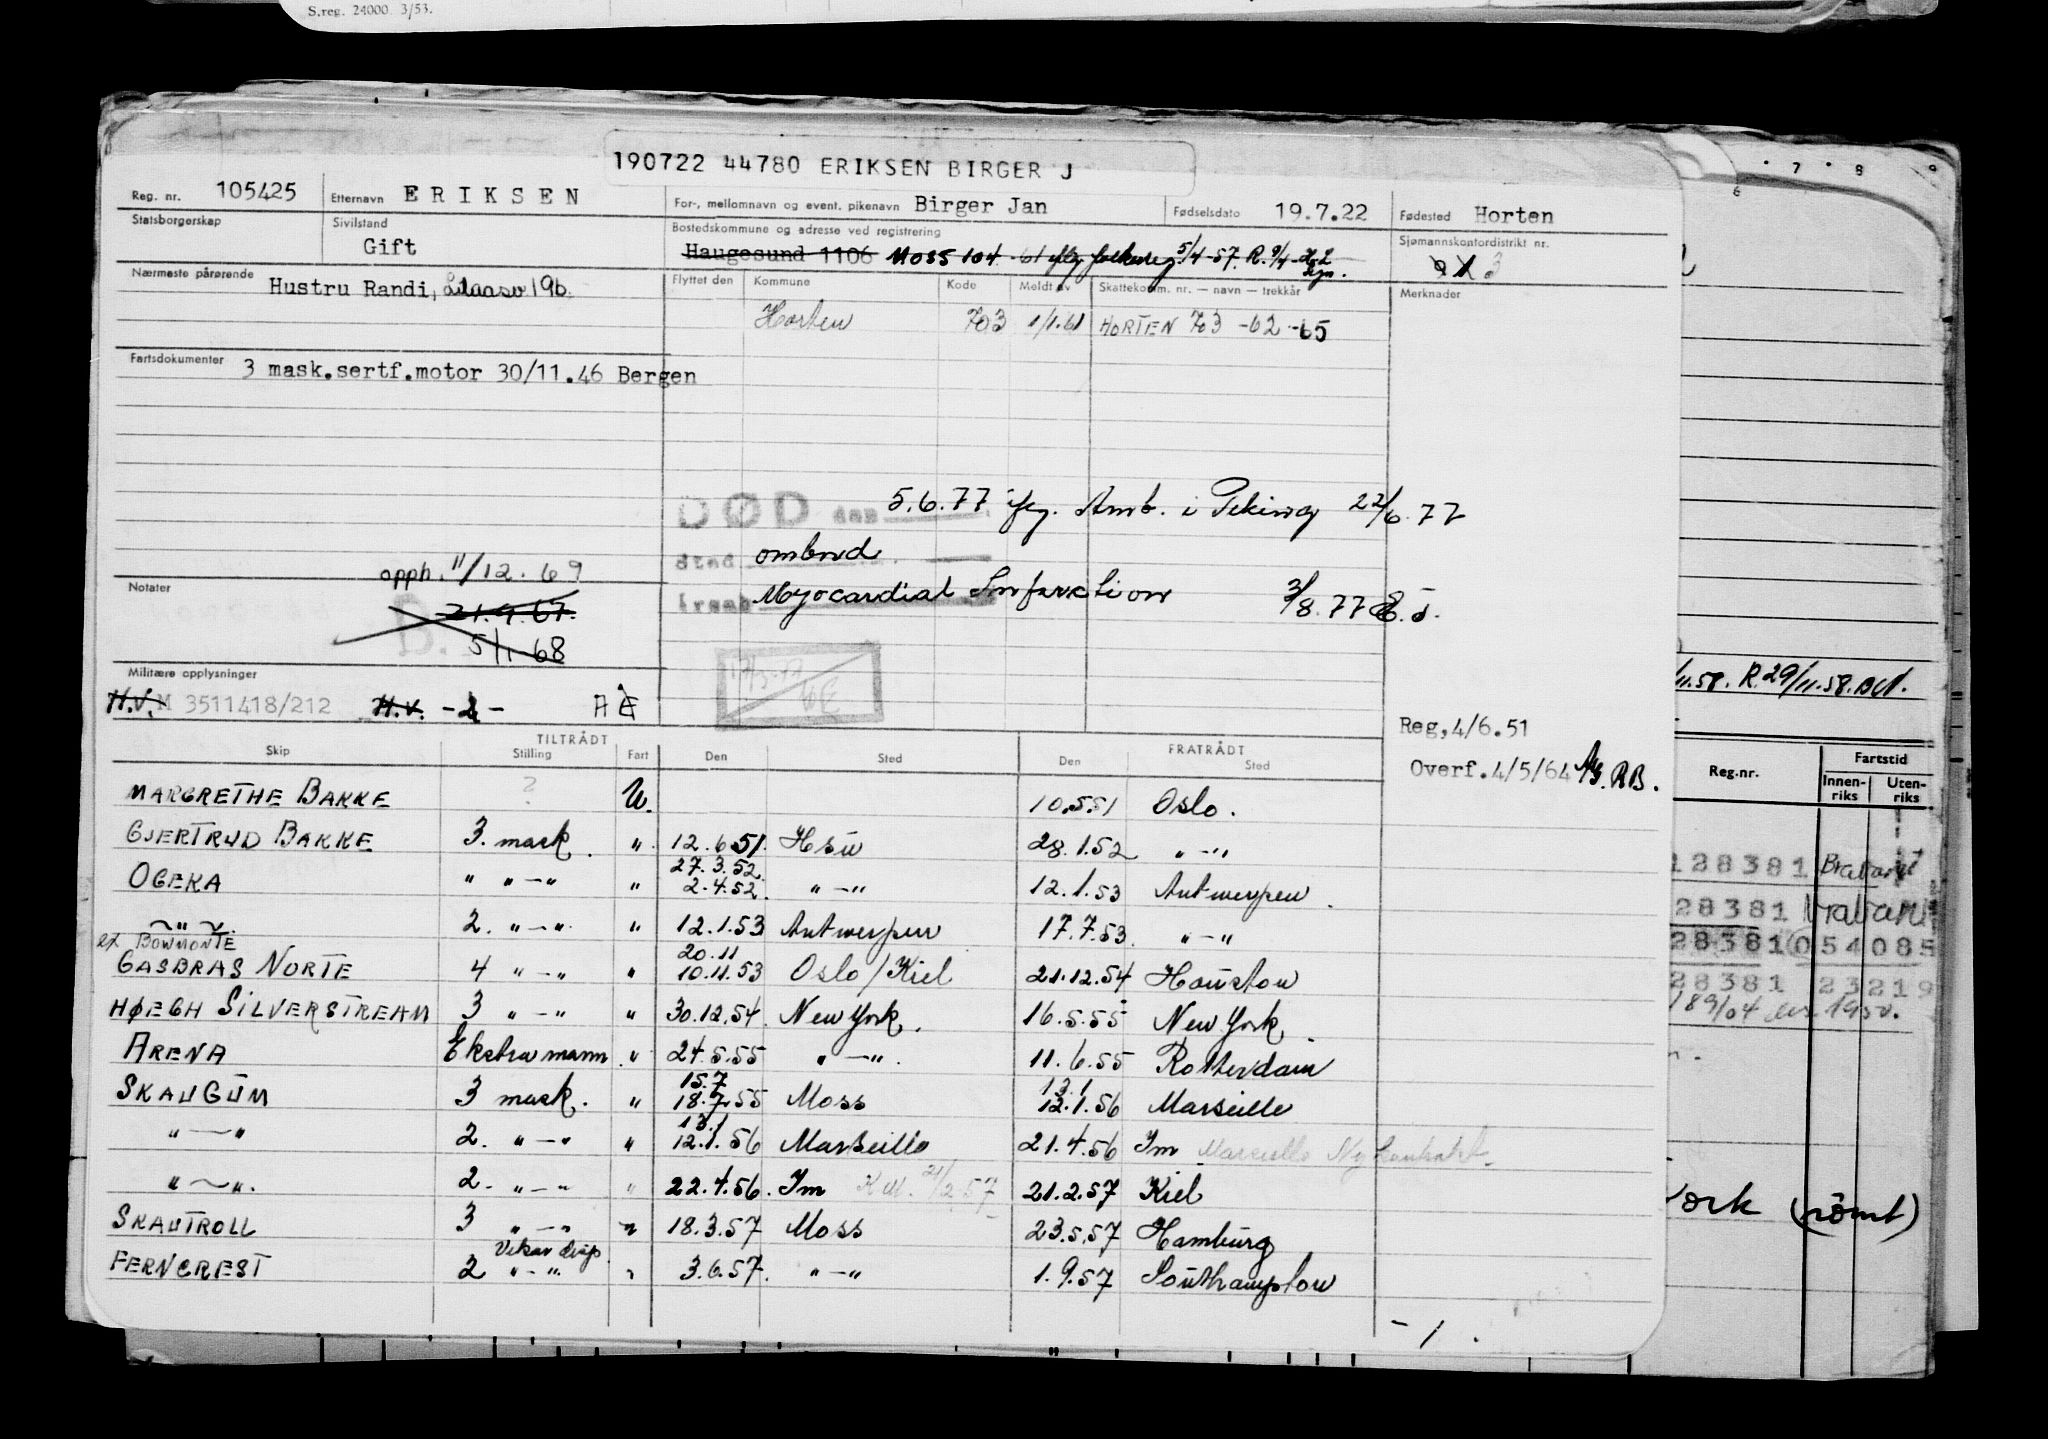 S.reg. 24000 3/53.
190722 44780 ERIKSEN BIRGER J
Reg. nr. 105425 Etternavn ERIKSEN For-, mellomnavn og event. pikenavn Birger Jan Fødselsdato 19.7.22 Fødested Horten
Statsborgerskap Sivilstand Gift Bostedskommune og adresse ved registrering Sjømannskontordistrikt nr.
Haugesund 1106 MOSS 104 -61 iflg folkereg 5/4-57. R. 9/4- 3
Nærmeste pårørende Hustru Randi, 19b. Flyttet den Kommune Kode Meldt av Skattekomm. nr. — navn — trekkår Merknader
Horten 703 1/1.61 HORTEN 703 -62 -65
Fartsdokumenter 3 mask.sertf.motor 30/11.46 Bergen
DØD den 5.6.77 iflg. Amb. i Peking 22/6.77
sted ombord
opph. 11/12.69
Notater årsak Myocardial Infarction 3/8.77 E.J.
21.9.67.
B. 5/1-68
Militære opplysninger
H.V. M 3511418/212 H.V. -2-
Reg,4/6.51
Overf.4/5/64 RB.
TILTRÅDT FRATRÅDT
Skip Stilling Fart Den Sted Den Sted
MARGRETHE BAKKE ? U. 10.5.51 Oslo.
GJERTRUD BAKKE 3. mask. " 12.6.51. Hsu 28.1.52 " — "
27.3.52.
OGEKA " " — " " 2.4.52. " — " 12.1.53 Antwerpen.
" 2. " — " " 12.1.53 Antwerpen 17.7.53. " — "
ex BOWMONTE. 20.11
GASBRAS NORTE 4 " — " " 10.11.53 Oslo/Kiel 21.12.54 Houston
HØEGH SILVERSTREAM 3 " — " " 30.12.54. New York. 16.5.55 New York.
ARENA Ekstramann. " 24.5.55 " — ". 11.6.55 Rotterdam
15.7 13.1
SKAUGUM 3 mask. " 18.7.55 Moss 12.1.56 Marseille
13.1
" — " 2. " — " " 12.1.56 Marseille 21.4.56 Im Marseille
" — ". 2. " — " " 22.4.56. Im Kiel 21/2.57 21.2.57 Kiel
SKAUTROLL 3 " — " " 18.3.57 Moss 23.5.57 Hamburg
Vikar disp.
FERNCREST 2 " — " " 3.6.57. " — " 1.9.57 Southampton
-1.
6 7 8 9
/11.58. R.29/11.58.
Reg.nr. Fartstid
Innen-riks Uten-riks
128381
28381
28381 054085
28381 23219
189/04
York (rømt)